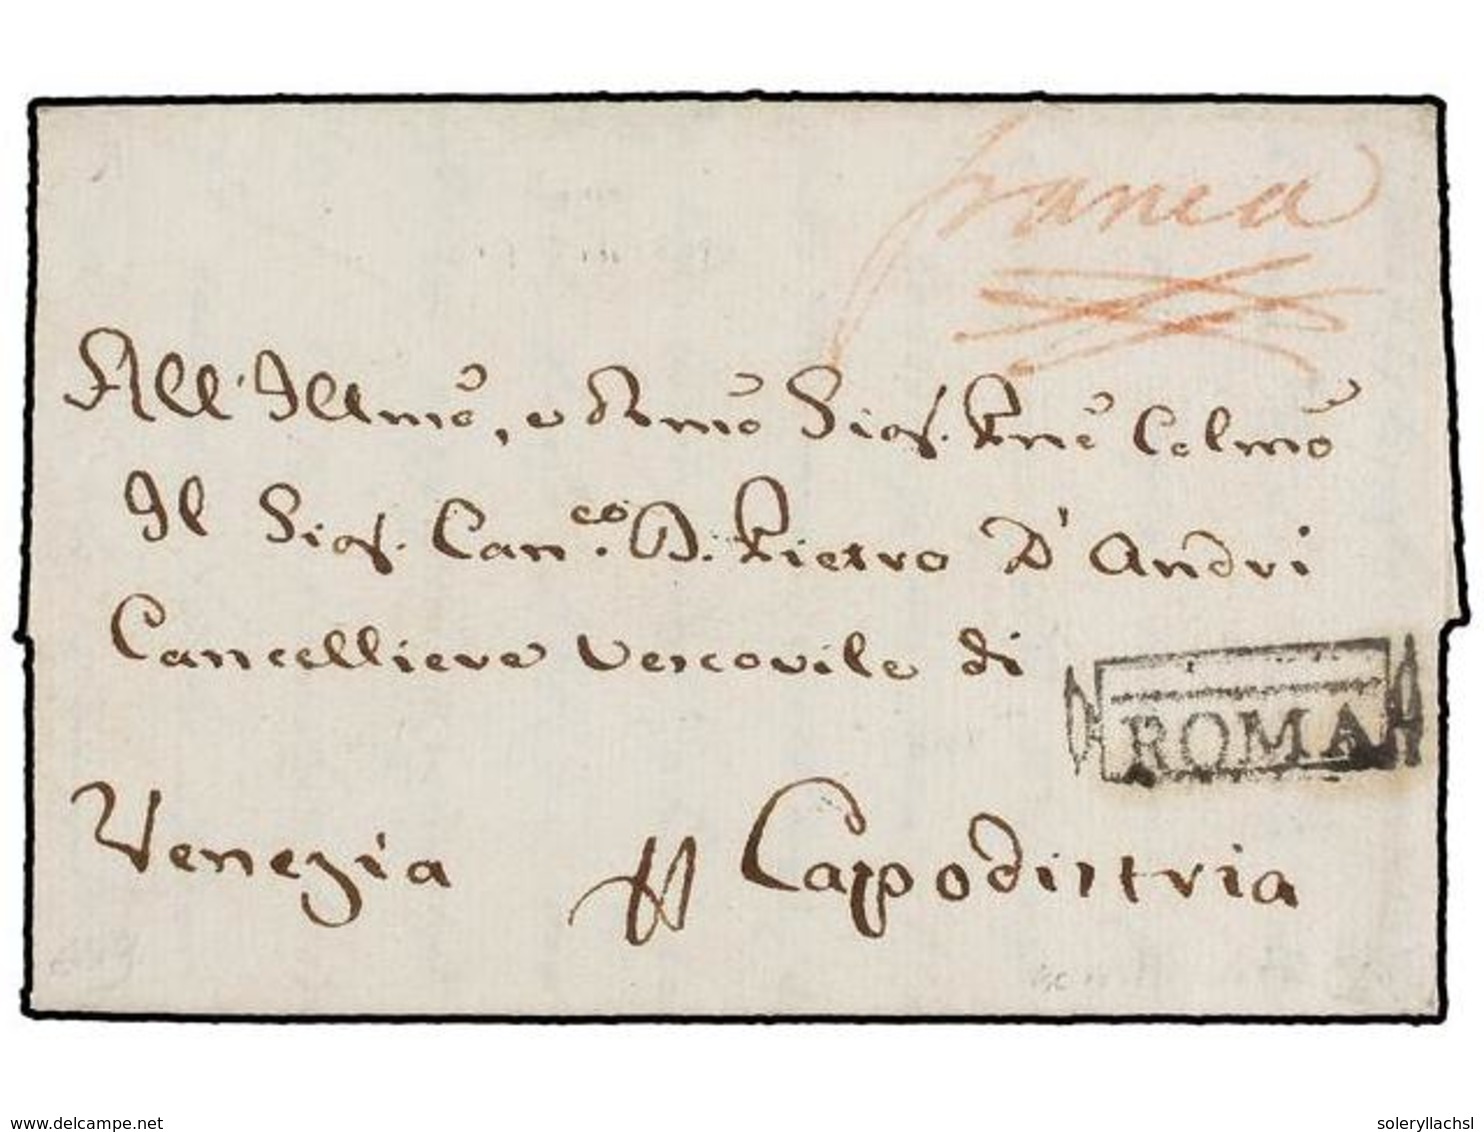 franca
All' Illmõ, e Rmõ Sigr. Prnẽ Colmõ
Il Sigr. Can.co D. Pietro D'Andri
Cancelliere Vescovile di
ROMA
Venezia Capodistria
delcampe.net
soleryllachsl